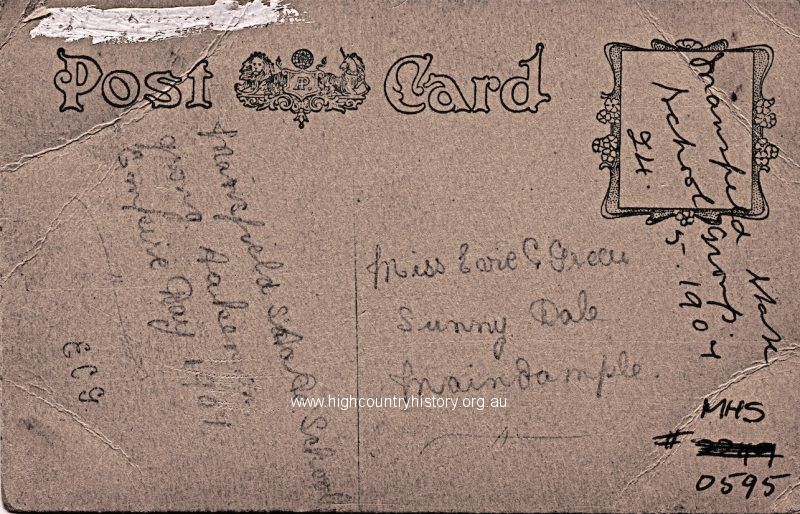 Post Card
Mansfield State School
group taken on
Empire Day 1907
ECG
Miss Evie C Green
Sunny Dale
Maindample.
Mansfield State
School Group.
24. 5. 1907
www.highcountryhistory.org.au
MHS
#
0595